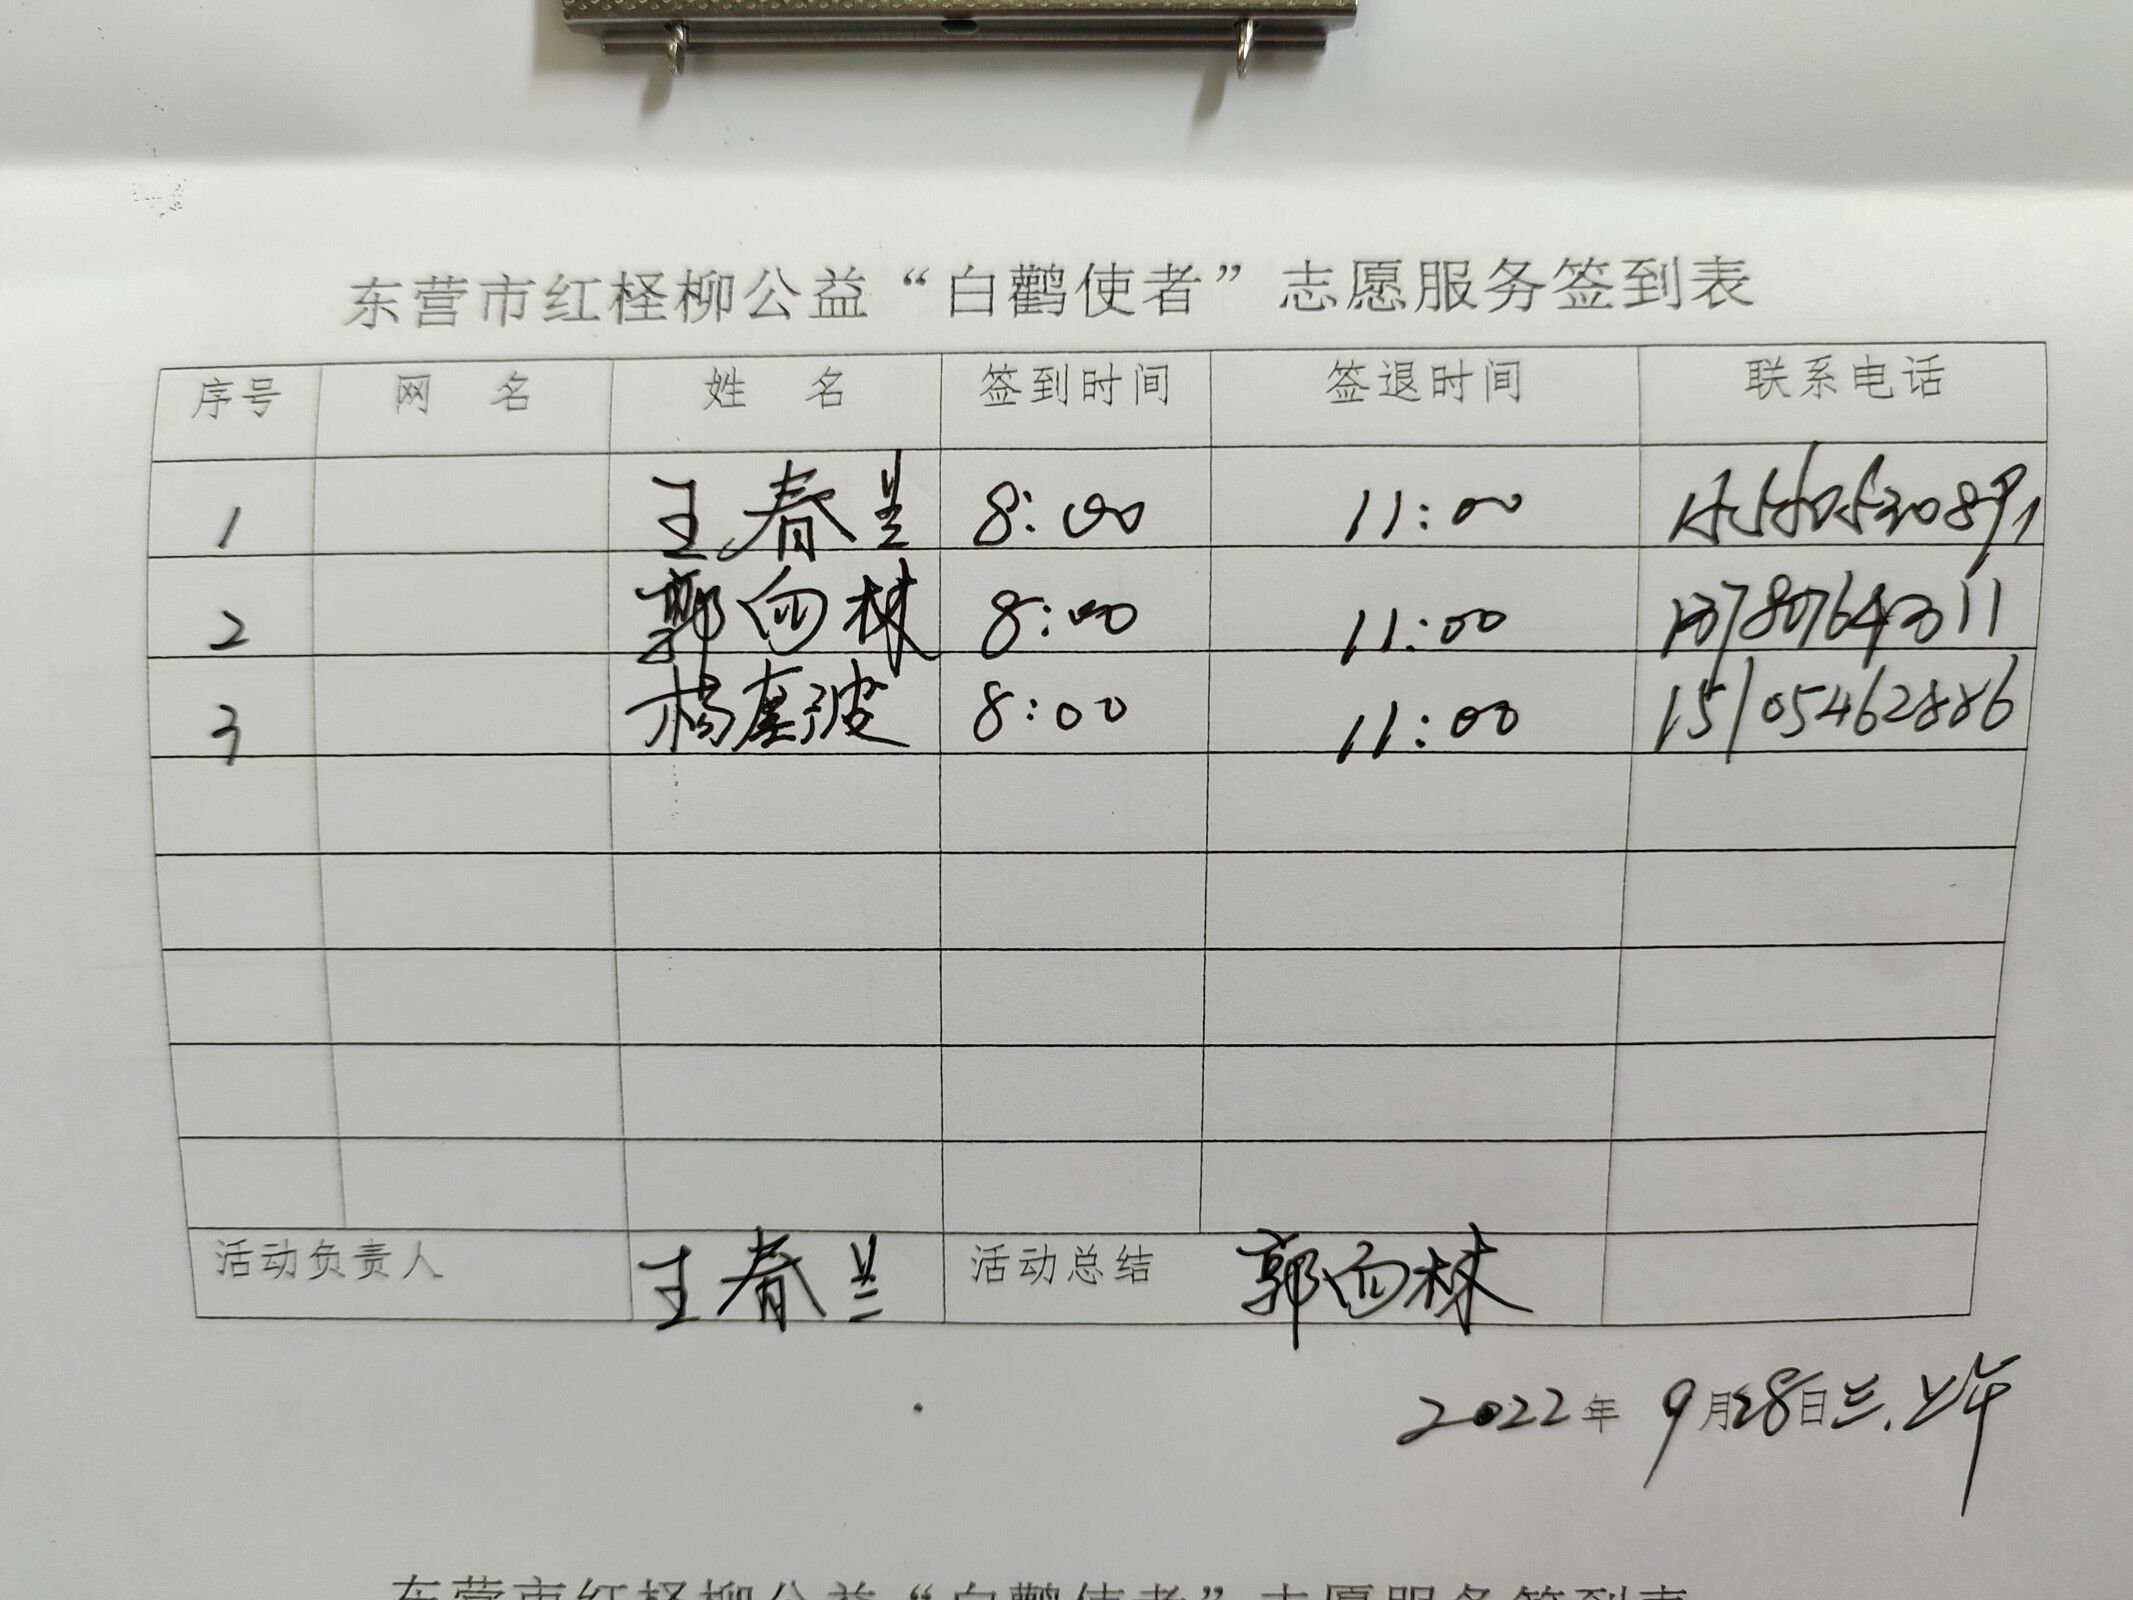 东营市红柽柳公益“白鹳使者”志愿服务签到表
序号 网 名 姓 名 签到时间 签退时间 联系电话
1 王春兰 8:00 11:00
2 郭向林 8:00 11:00
3 杨 波 8:00 11:00 15105462886
活动负责人 王春兰 活动总结 郭向林
2022年 9月28日 三.上午
东营市红柽柳公益“白鹳使者”志愿服务签到表